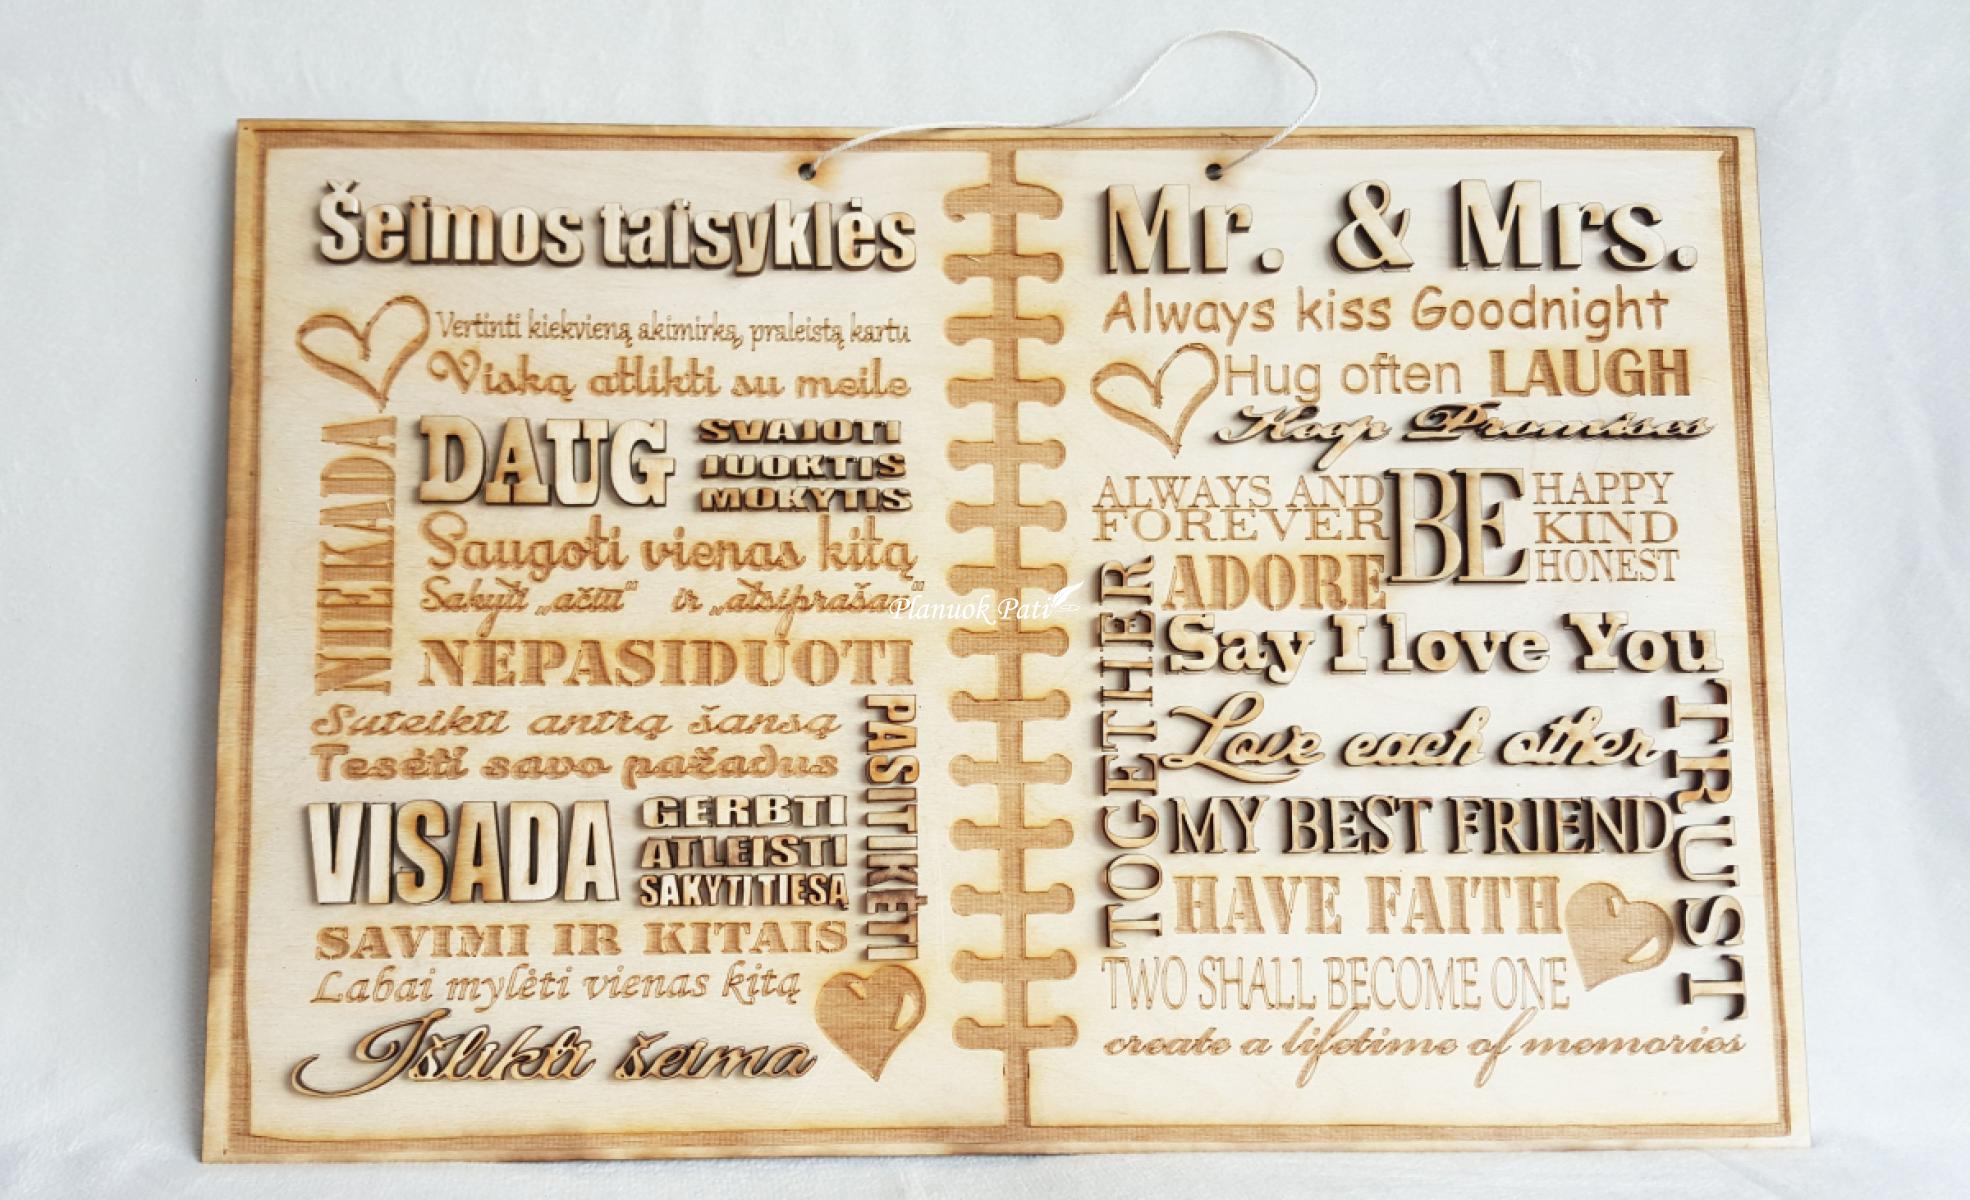 Šeimos taisyklės
Vertinti kiekvieną akimirką, praleistą kartu
Viską atlikti su meile
NIEKADA
DAUG
SVAJOTI
JUOKTIS
MOKYTIS
Saugoti vienas kitą
Sakyti „ačiū“ ir „atsiprašau“
NEPASIDUOTI
Suteikti antrą šansą
Tesėti savo pažadus
PASITIKĖTI
VISADA
GERBTI
ATLEISTI
SAKYTI TIESĄ
SAVIMI IR KITAIS
Labai mylėti vienas kitą
Išlikti šeima
Planuok Pati
Mr. & Mrs.
Always kiss Goodnight
Hug often LAUGH
Keep Promises
ALWAYS AND
FOREVER
BE
HAPPY
KIND
HONEST
ADORE
TOGETHER
Say I love You
Love each other
TRUST
MY BEST FRIEND
HAVE FAITH
TWO SHALL BECOME ONE
create a lifetime of memories